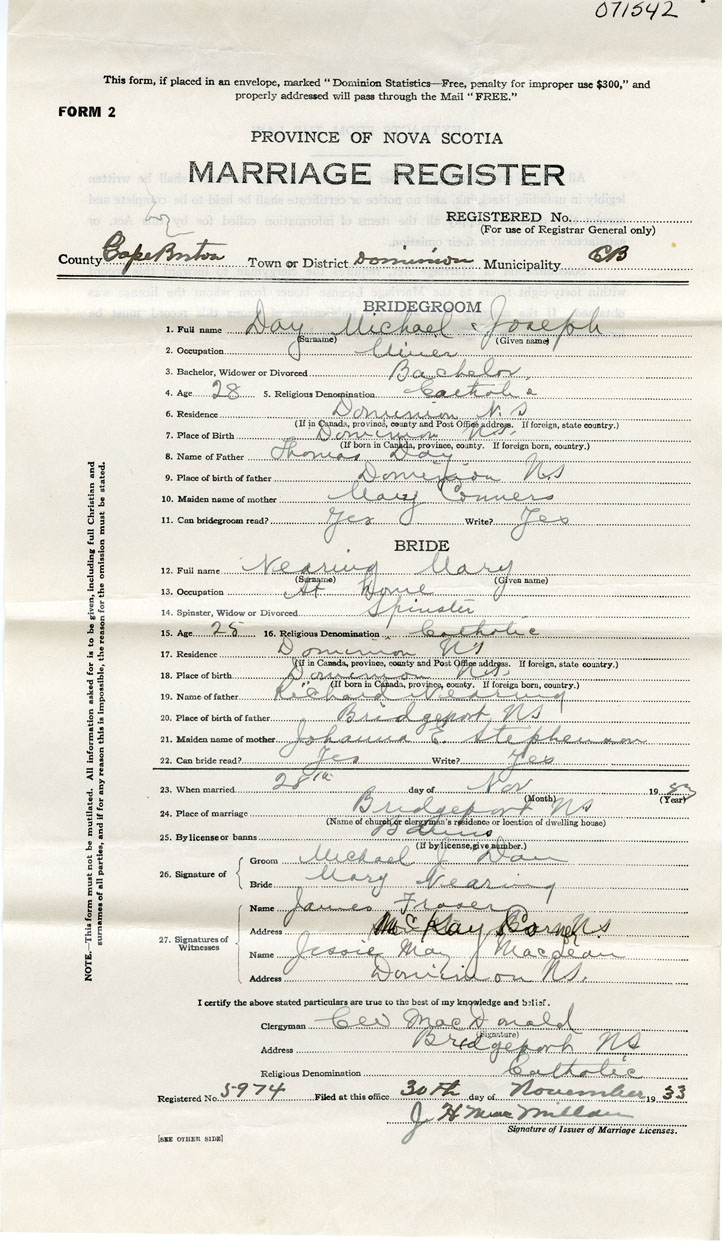 071542
This form, if placed in an envelope, marked "Dominion Statistics—Free, penalty for improper use $300," and
properly addressed will pass through the Mail "FREE."
FORM 2
PROVINCE OF NOVA SCOTIA
MARRIAGE REGISTER
REGISTERED No.
(For use of Registrar General only)
County Cape Breton Town or District Dominion Municipality CB
BRIDEGROOM
1. Full name Day Michael Joseph
(Surname) (Given name)
2. Occupation Miner
3. Bachelor, Widower or Divorced Bachelor
4. Age 28 5. Religious Denomination Catholic
6. Residence Dominion N S
(If in Canada, province, county and Post Office address. If foreign, state country.)
7. Place of Birth Dominion NS.
(If born in Canada, province, county. If foreign born, country.)
8. Name of Father Thomas Day
9. Place of birth of father Dominion NS
10. Maiden name of mother Mary Conners
11. Can bridegroom read? Yes Write? Yes
BRIDE
12. Full name Nearing Mary
(Surname) (Given name)
13. Occupation At Home
14. Spinster, Widow or Divorced. Spinster
15. Age 25 16. Religious Denomination Catholic
17. Residence Dominion NS
(if in Canada, province, county and Post Office address. If foreign, state country.)
18. Place of birth Dominion NS.
(If born in Canada, province, county. If foreign born, country.)
19. Name of father Richard Nearing
20. Place of birth of father Bridgeport, NS
21. Maiden name of mother Johanna E Stephenson
22. Can bride read? Yes Write? Yes
23. When married 28th day of Nov 19
(Month) (Year)
24. Place of marriage Bridgeport NS
(Name of church or clergyman's residence or location of dwelling house)
25. By license or banns
(If by license, give number.)
26. Signature of
Groom Michael J Day
Bride Mary Nearing
27. Signatures of Witnesses
Name James Fraser
Address McKay Corner NS
Name Jessie May Maclean
Address Dominion NS.
I certify the above stated particulars are true to the best of my knowledge and belief.
Clergyman MacDonald
(Signature)
Address Bridgeport NS
Religious Denomination Catholic
Registered No. 5974 Filed at this office 30th day of November 19 33
J H MacMillan
Signature of Issuer of Marriage Licenses.
[SEE OTHER SIDE]
NOTE.—This form must not be mutilated. All information asked for is to be given, including full Christian and
surnames of all parties, and if for any reason this is impossible, the reason for the omission must be stated.